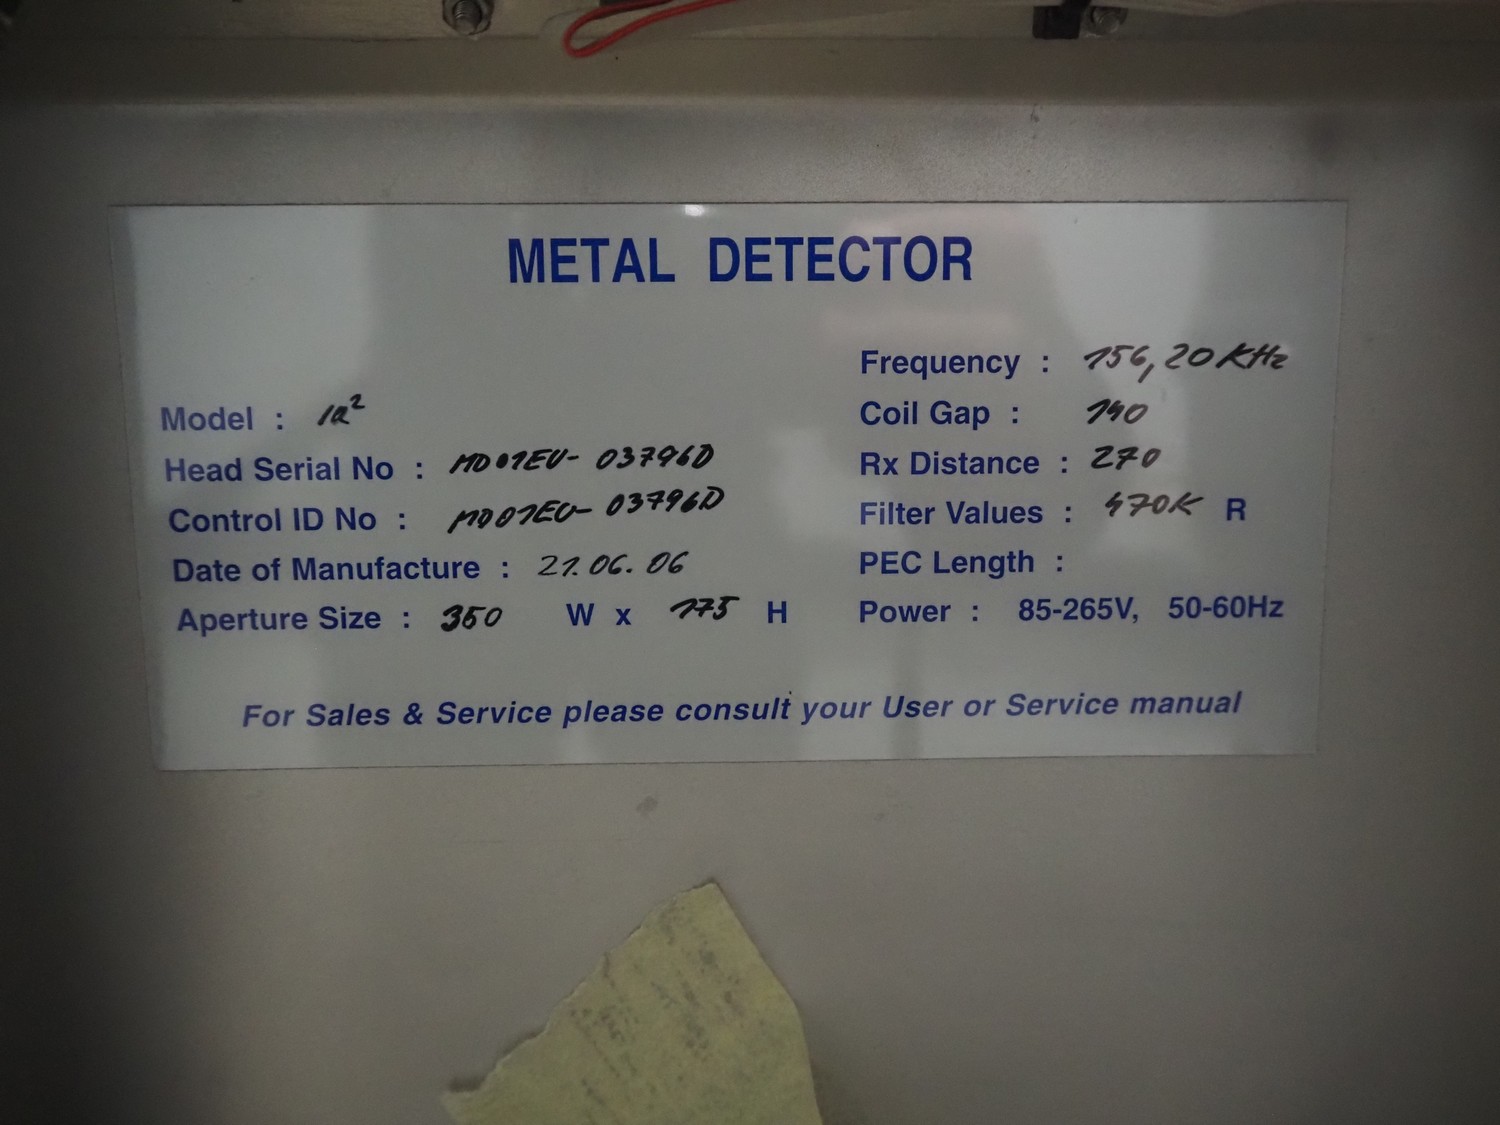 METAL DETECTOR
Model : IQ²
Head Serial No : MD01EU- 03796D
Control ID No : MD01EU- 03796D
Date of Manufacture : 21.06.06
Aperture Size : 350 W x 175 H
Frequency : 156,20 KHz
Coil Gap : 140
Rx Distance : 270
Filter Values : 470K R
PEC Length :
Power : 85-265V, 50-60Hz
For Sales & Service please consult your User or Service manual